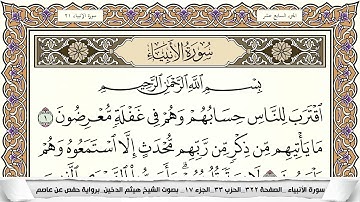 الجزء السابع عشر
سورة الأنبياء ٢١
سُورَةُ الأَنبِيَاءِ
بِسْمِ اللَّهِ الرَّحْمَٰنِ الرَّحِيمِ
ٱقْتَرَبَ لِلنَّاسِ حِسَابُهُمْ وَهُمْ فِى غَفْلَةٍ مُّعْرِضُونَ ١
مَا يَأْتِيهِم مِّن ذِكْرٍ مِّن رَّبِّهِم مُّحْدَثٍ إِلَّا ٱسْتَمَعُوهُ وَهُمْ
سورة الأنبياء _ الصفحة ٣٢٢_ الحزب ٣٣_ الجزء ١٧_ بصوت الشيخ هيثم الدخين_ برواية حفص عن عاصم